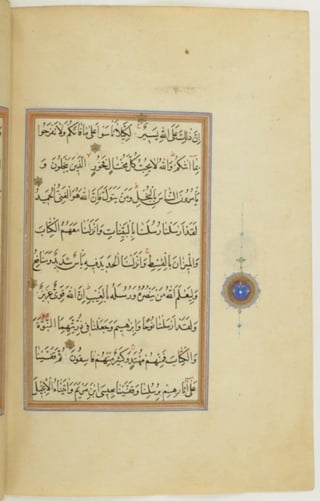 إِنَّ ذَلِكَ عَلَى اللهِ يَسِيرٌ لِكَيْلَا تَأْسَوْا عَلَى مَا فَاتَكُمْ وَلَا تَفْرَحُوا
بِمَا آتَيكُمْ وَاللهُ لَا يُحِبُّ كُلَّ مُخْتَالٍ فَخُورٍ الَّذِينَ يَبْخَلُونَ وَ
يَأْمُرُونَ النَّاسَ بِالْبُخْلِ وَمَنْ يَتَوَلَّ فَإِنَّ اللهَ هُوَ الْغَنِيُّ الْحَمِيدُ
لَقَدْ أَرْسَلْنَا رُسُلَنَا بِالْبَيِّنَاتِ وَأَنْزَلْنَا مَعَهُمُ الْكِتَابَ
وَالْمِيزَانَ بِالْقِسْطِ وَأَنْزَلْنَا الْحَدِيدَ فِيهِ بَأْسٌ شَدِيدٌ وَمَنَافِعُ
وَلِيَعْلَمَ اللهُ مَنْ يَنْصُرُهُ وَرُسُلَهُ بِالْغَيْبِ إِنَّ اللهَ قَوِيٌّ عَزِيزٌ
وَلَقَدْ أَرْسَلْنَا نُوحًا وَإِبْرَهِيمَ وَجَعَلْنَا فِي ذُرِّيَّتِهِمَا النُّبُوَّةَ
وَالْكِتَابَ فَمِنْهُمْ مُهْتَدٍ وَكَثِيرٌ مِنْهُمْ فَاسِقُونَ ثُمَّ قَفَّيْنَا
عَلَى آثَارِهِمْ بِرُسُلِنَا وَقَفَّيْنَا بِعِيسَى ابْنِ مَرْيَمَ وَآتَيْنَاهُ الْإِنْجِيلَ